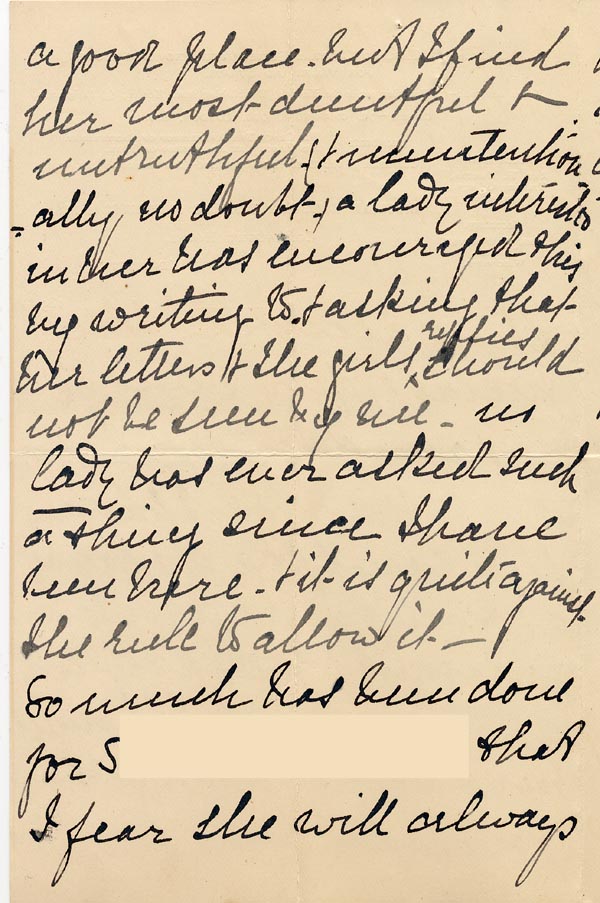 a good place. but I find
her most deceitful &
untruthful, (& unintention
-ally no doubt,) a lady interested
in her has encouraged this
by writing to, & asking that
her letters & the girls replies should
not be seen by me – no
lady has ever asked such
a thing since I have
been here. – & it is quite against
the rule to allow it –
So much has been done
for S that
I fear she will always